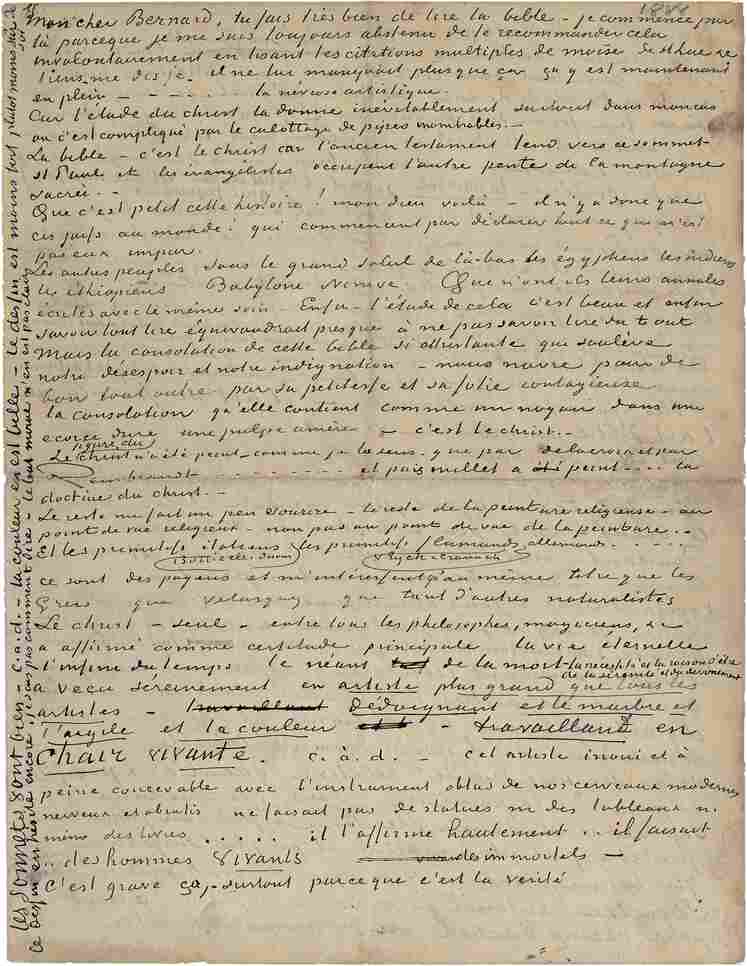 1888
Mon cher Bernard, tu fais très bien de lire la bible – je commence par
là parceque je me suis toujours abstenu de te recommander cela
involontairement en lisant les citations multiples de moise de St Luc
tiens me disje. il ne lui manquait plus que ça ça y est maintenant
en plein – – – – – – la nevrose artistique.
Car l'étude du christ la donne inévitablement surtout dans mon cas
ou c'est compliqué par le culottage de pipes innombrables. –
La bible – c'est le Christ car l'ancien testament tend vers ce sommet
St Paul et les évangélistes occupent l'autre pente de la montagne
sacrée. –
Que c'est petit cette histoire! mon dieu voilà – il n'y a donc que
ces juifs au monde! qui commencent par déclarer tout ce qui n'est
pas eux impur.
Les autres peuples sous le grand soleil de là-bas les égyptiens les indiens
les éthiopiens Babylone Ninive. Que n'ont ils leurs annales
écrites avec le même soin. Enfin l'étude de cela c'est beau et enfin
savoir tout lire équivaudrait presque à ne pas savoir lire du tout
Mais la consolation de cette bible si attristante qui soulève
notre désespoir et notre indignation – nous navre pour de
bon tout outré par sa petitesse et sa folie contagieuse
la consolation qu'elle contient comme un noyau dans une
ecorce dure une pulpe amère – c'est le christ. –
figure du
Le Christ n'a été peint – comme je le sens – que par delacroix et par
Rembrandt – – – – – – – et puis millet a peint .... la
doctrine du christ. –
Le reste me fait un peu sourire – le reste de la peinture religieuse – au
point de vue religieux – non pas au point de vue de la peinture. . .
Et les primitifs italiens les primitifs flamands, allemands. . . .
Botticelli
v. Eyck & Cranach
ce sont des payens et m'intéressent qu'au même titre que les
Grecs que Velasquez que tant d'autres naturalistes
Le christ – seul – entre tous les philosophes, magiciens, &c
a affirmé comme certitude principale la vie éternelle
l'infini du temps le néant de la mort – la nécessité et la raison d'être
de la sérénité et du dévouement
Il a vécu sereinement en artiste plus grand que tous les
artistes – travaillant dédaignant et le marbre et
l'argile et la couleur – travaillant en
Chair vivante. c. à. d. – cet artiste inoui et à
peine concevable avec l'instrument obtus de nos cerveaux modernes
nerveux et abrutis ne faisait pas de statues ni des tableaux ni
même des livres . . . . . il l'affirme hautement .. il faisait
.. des hommes vivants des immortels –
C'est grave ça, – surtout parceque c'est la vérité
les Sonnets sont bien – c.a.d. – la couleur en est belle – le dessin est moins fort plutôt moins sûr
ce dessin en hésite encore, je sais pas comment dire – le but moral n'en est pas clair